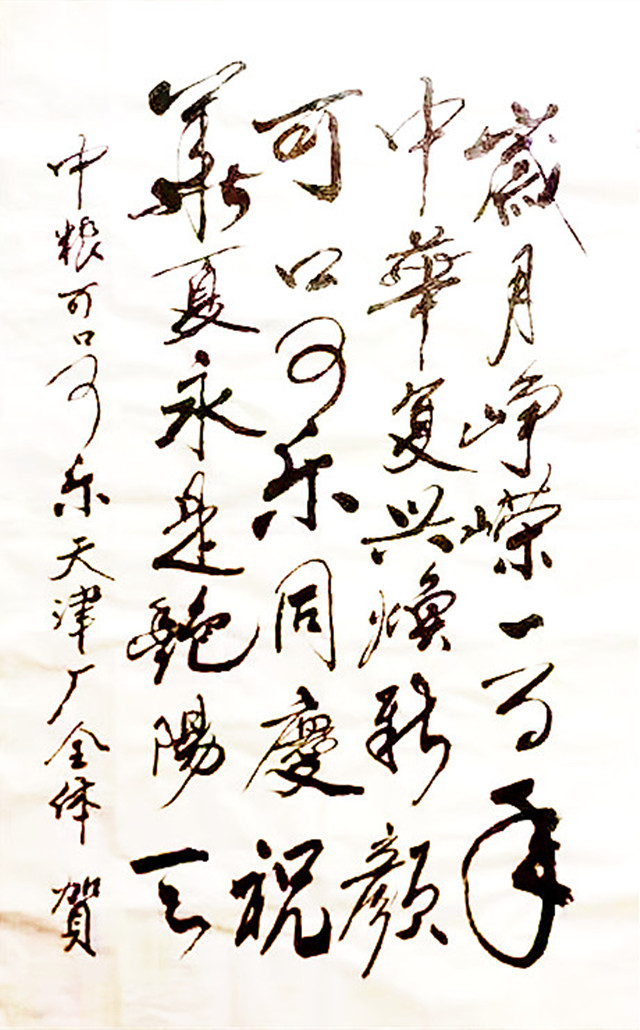 歲月峥嵘一百年
中華复兴焕新顏
可口可乐同慶祝
華夏永是艶陽天
中粮可口可乐天津厂全体 賀